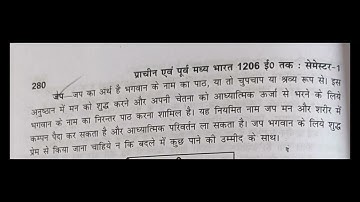 प्राचीन एवं पूर्व मध्य भारत 1206 ई0 तक : सेमेस्टर-1
280
जप—जप का अर्थ है भगवान के नाम का पाठ, या तो चुपचाप या श्रव्य रूप से। इस
अनुष्ठान में मन को शुद्ध करने और अपनी चेतना को आध्यात्मिक ऊर्जा से भरने के लिये
भगवान के नाम का निरन्तर पाठ करना शामिल है। यह नियमित नाम जप मन और शरीर में
कम्पन पैदा कर सकता है और आध्यात्मिक परिवर्तन ला सकता है। जप भगवान के लिये शुद्ध
प्रेम से किया जाना चाहिये न कि बदले में कुछ पाने की उम्मीद के साथ।